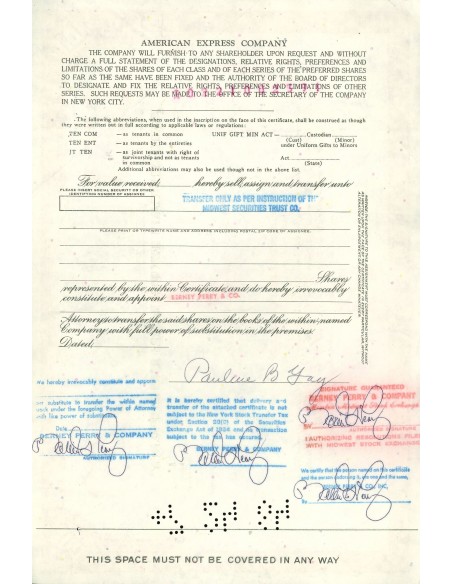 AMERICAN EXPRESS COMPANY
THE COMPANY WILL FURNISH TO ANY SHAREHOLDER UPON REQUEST AND WITHOUT
CHARGE A FULL STATEMENT OF THE DESIGNATIONS, RELATIVE RIGHTS, PREFERENCES AND
LIMITATIONS OF THE SHARES OF EACH CLASS AND OF EACH SERIES OF THE PREFERRED SHARES
SO FAR AS THE SAME HAVE BEEN FIXED AND THE AUTHORITY OF THE BOARD OF DIRECTORS
TO DESIGNATE AND FIX THE RELATIVE RIGHTS, PREFERENCES AND LIMITATIONS OF OTHER
SERIES. SUCH REQUESTS MAY BE MADE TO THE OFFICE OF THE SECRETARY OF THE COMPANY
IN NEW YORK CITY.
The following abbreviations, when used in the inscription on the face of this certificate, shall be construed as though
they were written out in full according to applicable laws or regulations:
TEN COM — as tenants in common UNIF GIFT MIN ACT— Custodian
(Cust) (Minor)
TEN ENT — as tenants by the entireties under Uniform Gifts to Minors
JT TEN — as joint tenants with right of Act
survivorship and not as tenants (State)
in common
Additional abbreviations may also be used though not in the above list.
For value received hereby sell, assign and transfer unto
PLEASE INSERT SOCIAL SECURITY OR OTHER
IDENTIFYING NUMBER OF ASSIGNEE
TRANSFER ONLY AS PER INSTRUCTION OF THE
MIDWEST SECURITIES TRUST CO.
PLEASE PRINT OR TYPEWRITE NAME AND ADDRESS INCLUDING POSTAL ZIP CODE OF ASSIGNEE
Shares
represented by the within Certificate, and do hereby irrevocably
constitute and appoint BERNEY PERRY & CO.
Attorney to transfer the said shares on the books of the within named
Company with full power of substitution in the premises
Dated
Pauline B
We hereby irrevocably constitute and appoint
as substitute to transfer the within named
under the foregoing Power of Attorney
with like power of substitution
Date
BERNEY PERRY & COMPANY
AUTHORIZED SIGNATURE
It is hereby certified that delivery and
transfer of the attached certificate is not
subject to the New York Stock Transfer Tax
of the Securities
Exchange Act of 1934 and its transaction
subject to the
BERNEY PERRY & COMPANY
SIGNATURE GUARANTEED
BERNEY PERRY & COMPANY
AUTHORIZED SIGNATURE
AUTHORIZED RESOLUTIONS FILED
WITH MIDWEST STOCK EXCHANGE
We certify that the person named on this certificate
and the person endorsing it, are one and the same,
THIS SPACE MUST NOT BE COVERED IN ANY WAY